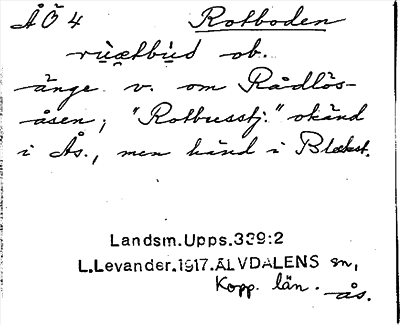 ÅÖ 4 Rotboden
ob.
änge v. om Rådlös-
åsen; "Rotbusstj." okänd
i Ås., men känd i Blekst.
Landsm.Upps.339:2
L.Levander.1917.ÄLVDALENS sn,
Kopp. län. ås.